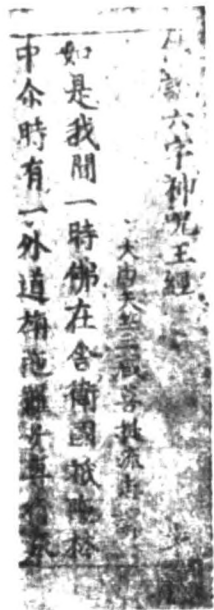 說六字神呪王經
大唐天竺三藏菩提流志
如是我聞一時佛在舍衛國祇
中尒時有一外道旃陁羅女專行